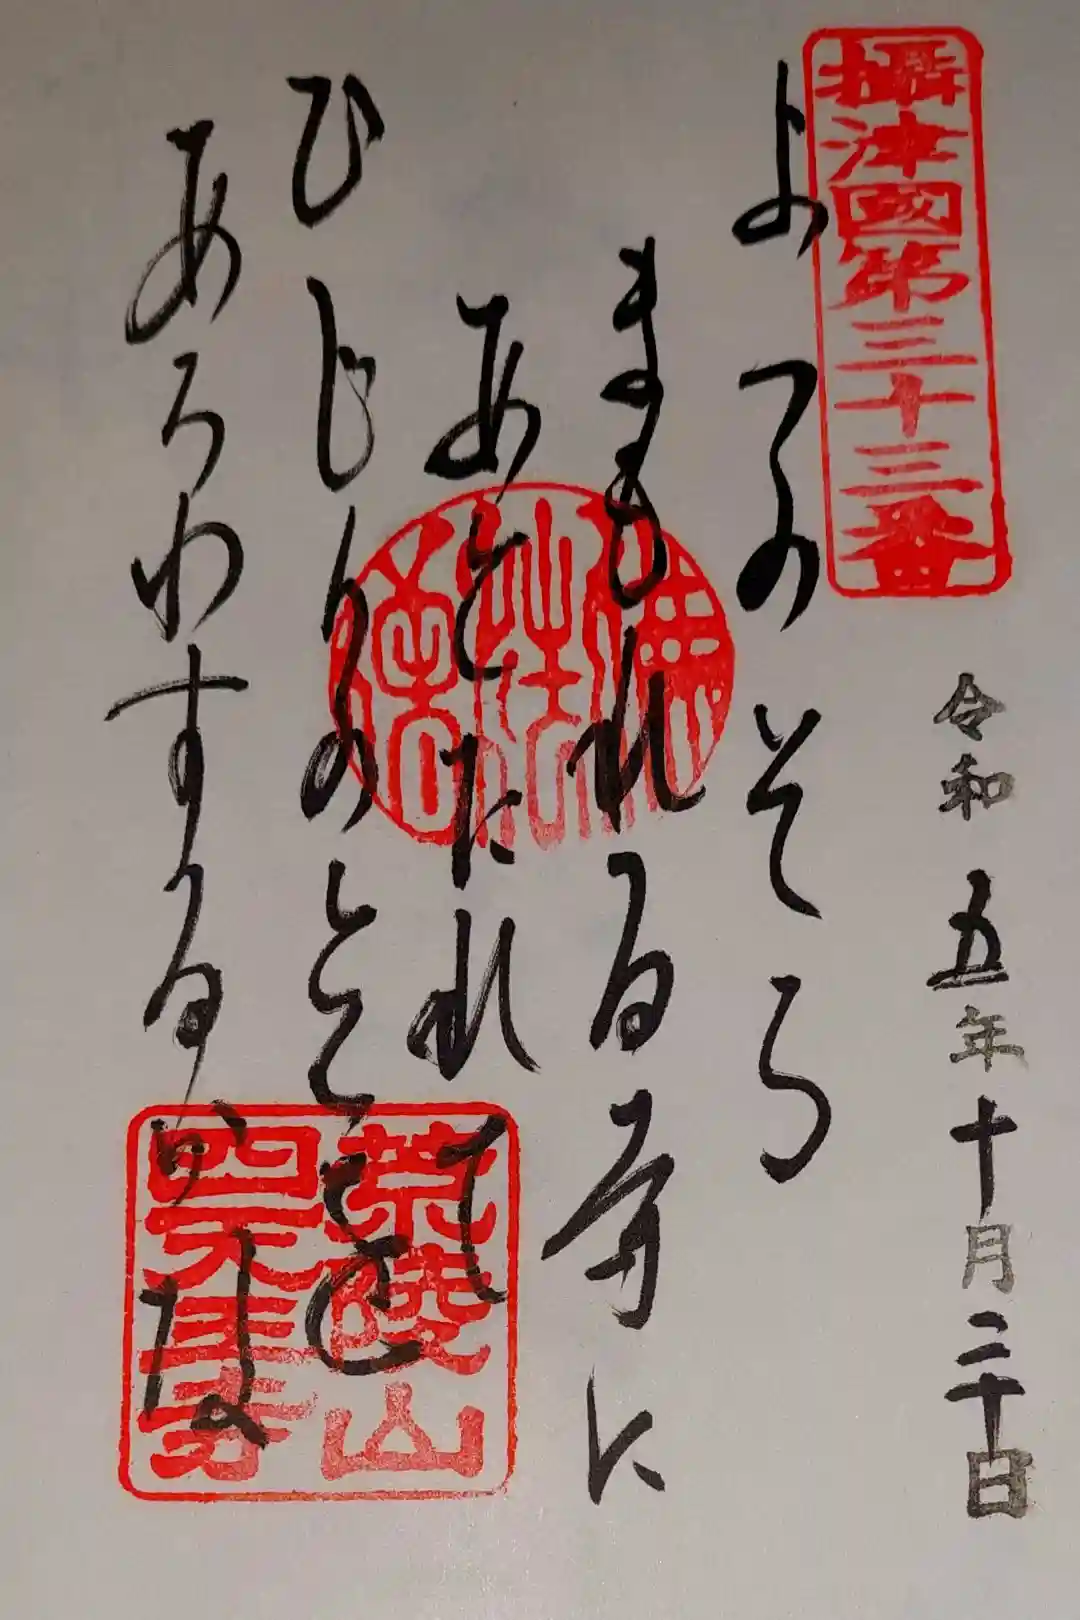 攝津國第三十三番
令和五年十月二十日
よつのそら
まもれる寺に
あとたれて
ひじりの
あらわするかは
荒陵山
四天王寺